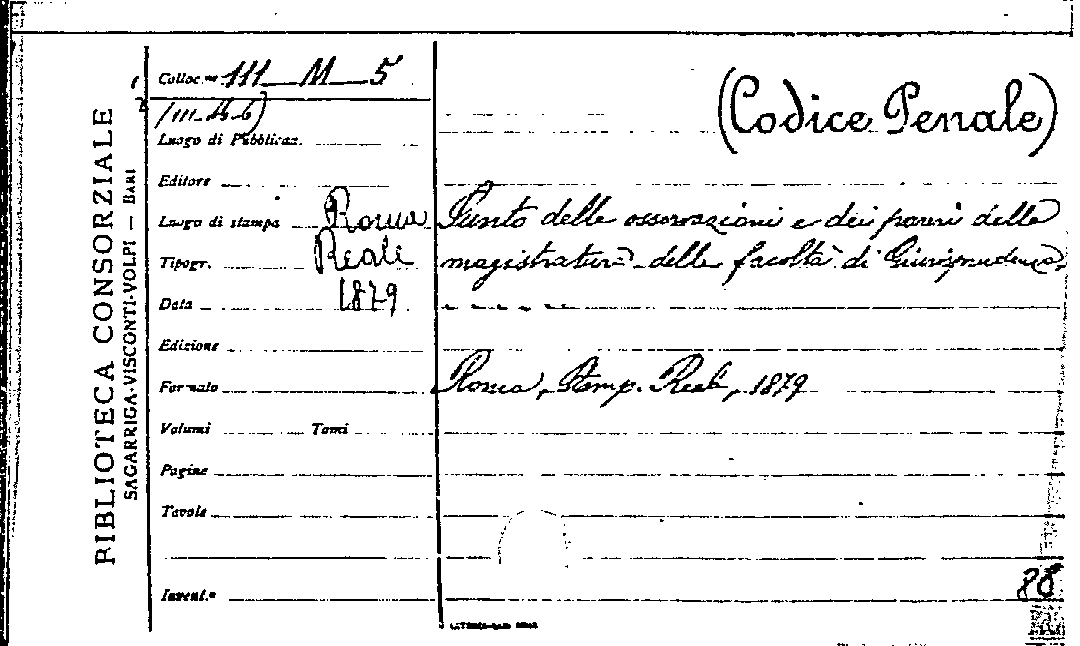 BIBLIOTECA CONSORZIALE
SAGARRIGA-VISCONTI-VOLPI — BARI
Colloc.ne 111 M 5
(III-16-6)
Luogo di Pubblicaz.
Editore
Luogo di stampa Roma
Tipogr. Reale
Data 1879
Edizione
Formato
Volumi Tomi
Pagine
Tavole
Invent.o
(Codice Penale)
Sunto delle osservazioni e dei pareri della
magistratura delle facoltà di Giurisprudenza,
- - - - -
Roma, Stamp. Reale, 1879
88